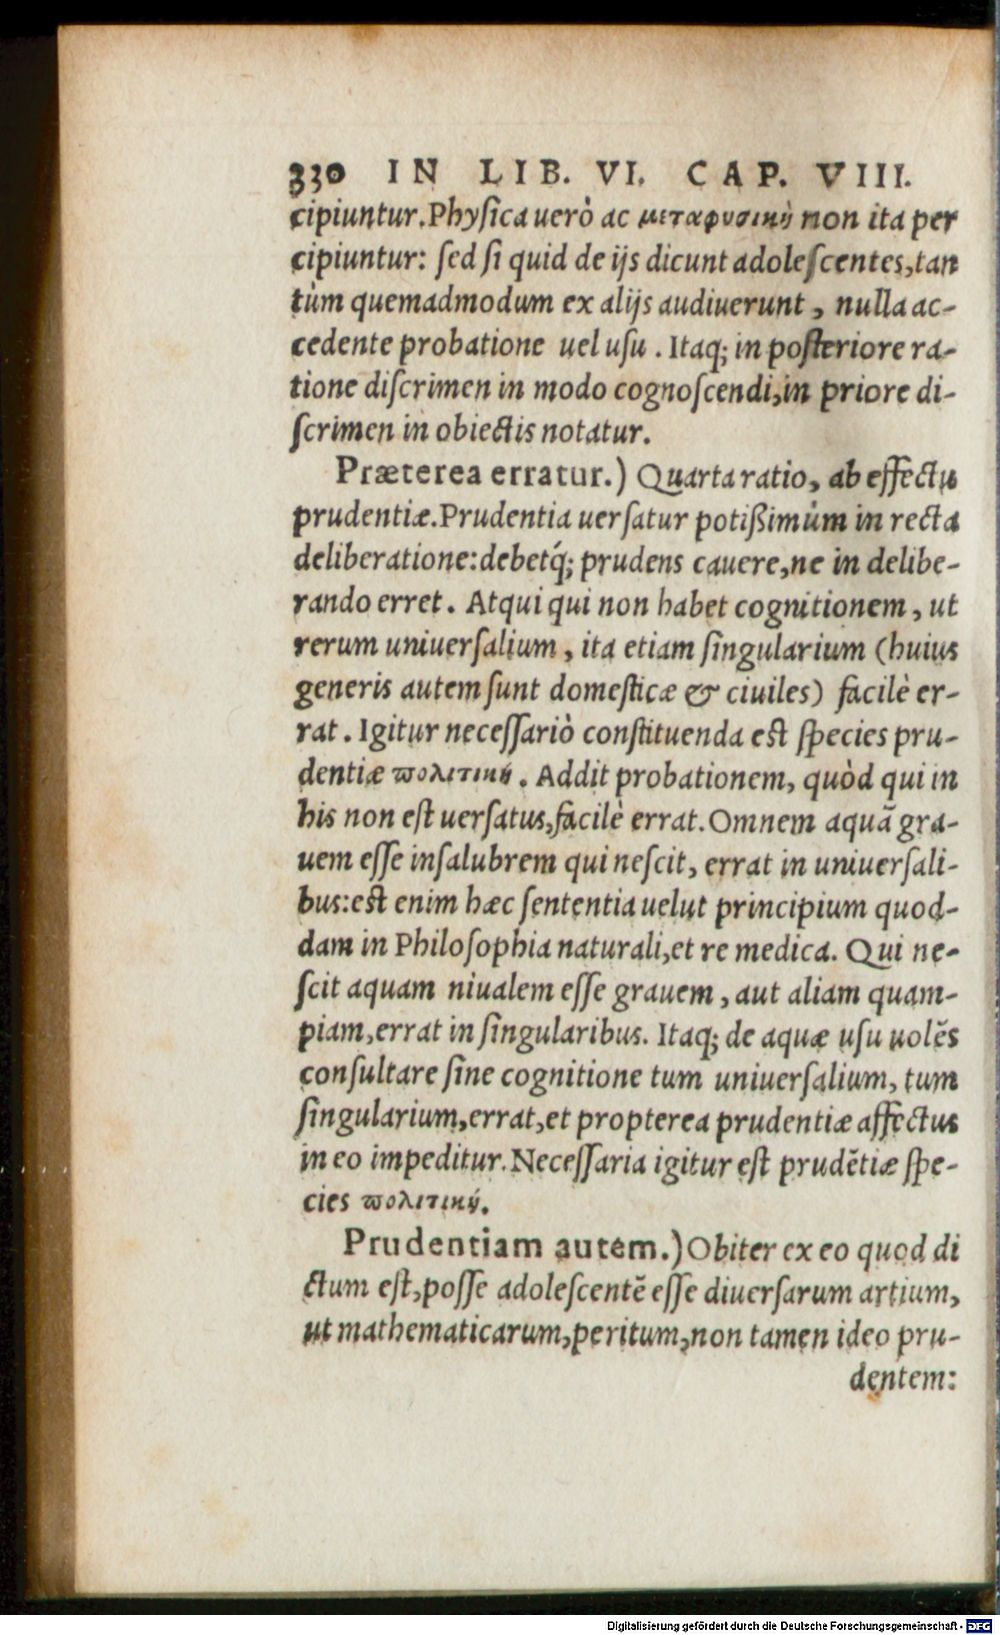 330 IN LIB. VI. CAP. VIII.
cipiuntur. Physica uerò ac μεταφυσικὴ non ita per
cipiuntur: sed si quid de ijs dicunt adolescentes, tan
tùm quemadmodum ex alijs audiuerunt, nulla ac-
cedente probatione uel usu. Itaq; in posteriore ra-
tione discrimen in modo cognoscendi, in priore di-
scrimen in obiectis notatur.
Præterea erratur.) Quarta ratio, ab effectu
prudentiæ. Prudentia uersatur potißimùm in recta
deliberatione: debetq́; prudens cauere, ne in delibe-
rando erret. Atqui qui non habet cognitionem, ut
rerum uniuersalium, ita etiam singularium (huius
generis autem sunt domesticæ & ciuiles) facilè er-
rat. Igitur necessariò constituenda est species pru-
dentiæ πολιτική. Addit probationem, quòd qui in
his non est uersatus, facilè errat. Omnem aquã gra-
uem esse insalubrem qui nescit, errat in uniuersali-
bus: est enim hæc sententia uelut principium quod-
dam in Philosophia naturali, et re medica. Qui ne-
scit aquam niualem esse grauem, aut aliam quam-
piam, errat in singularibus. Itaq; de aquæ usu uolẽs
consultare sine cognitione tum uniuersalium, tum
singularium, errat, et propterea prudentiæ affectus
in eo impeditur. Necessaria igitur est prudẽtiæ spe-
cies πολιτική.
Prudentiam autem.) Obiter ex eo quod di
ctum est, posse adolescentẽ esse diuersarum artium,
ut mathematicarum, peritum, non tamen ideo pru-
dentem:
Digitalisierung gefördert durch die Deutsche Forschungsgemeinschaft - DFG